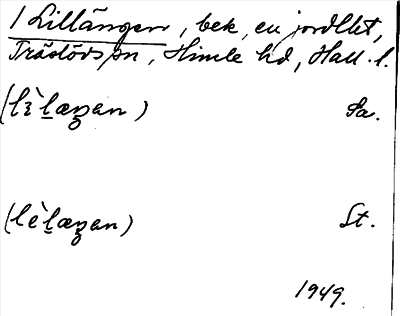 1 Lillängen, bek, en jordlht,
Träslövs sn, Himle hd, Hall. l.
(lɛ̀læŋan) Sa.
(lèlæŋan) St.
1949.